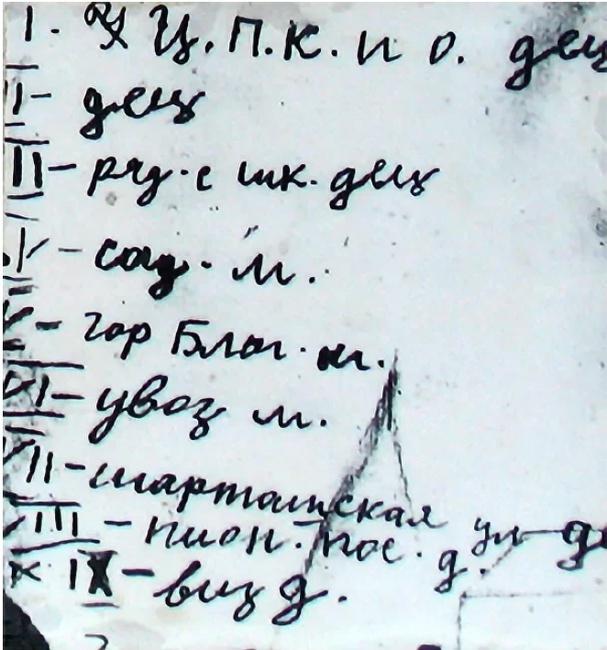 I. Ц.П.К. и О. дец
II - дец
III - ряд. с шк. дец
IV - сад. м.
V - гор Благ. м.
VI - увоз м.
VII - шарташская ул д
VIII - пион. пос. д.
IX - виз д.